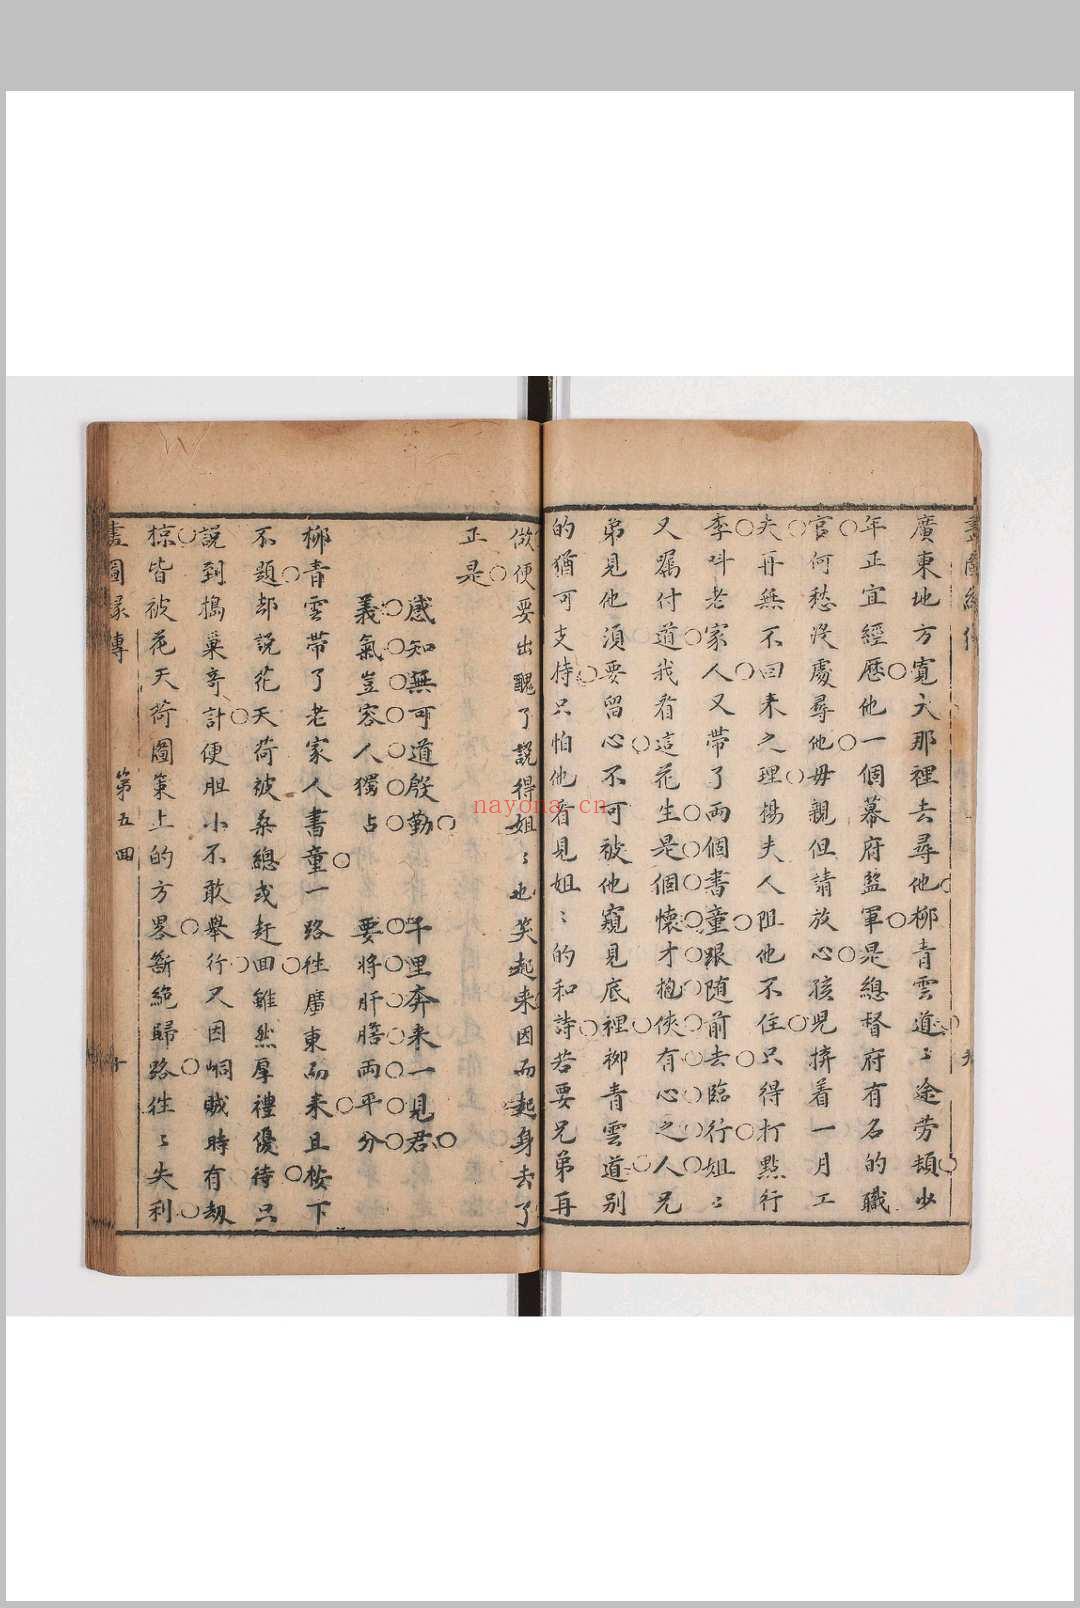 廣東地方寬大那裡去尋他柳青雲道〻途勞頓少
年正宜經歷他一個幕府監軍是總督府有名的職
官何愁沒處尋他毋親但請放心孩児擠着一月工
夫再無不回来之理楊夫人阻他不住只得打點行
李呌老家人又帶了兩個書童跟随前去臨行姐〻
又囑付道我看這花生是個懷才抱俠有心之人兄
弟見他須要留心不可被他窺見底裡栁青雲道别
的猶可支持只怕他看見姐〻的和詩若要兄弟再
做便要出醜了說得姐〻也笑起来因而起身去了
正是
感知無可道殷勤 千里奔来一見君
義氣豈容人獨占 要將肝膽兩平分
柳青雲帶了老家人書童一路徃廣東而来且按下
不題却說花天荷被桑總戎赶回雖然厚禮優待只
說到搗巢竒計便胆小不敢舉行又因峒賊時有刼
掠皆被花天荷圖策上的方畧斷絶歸路徃〻失利
畫圖緣傳
第五回
十
nayona.cn